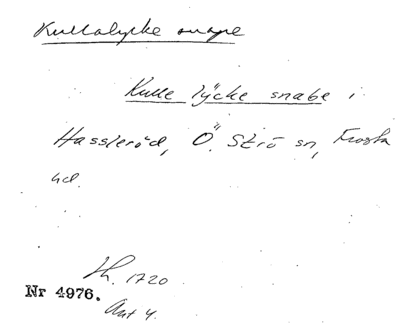 Kullalycke snape
Kulle lÿcke snabe i
Hassleröd, Ö. Strö sn, Frosta
hd.
Lh. 1720
Nr 4976.
Akt 4.